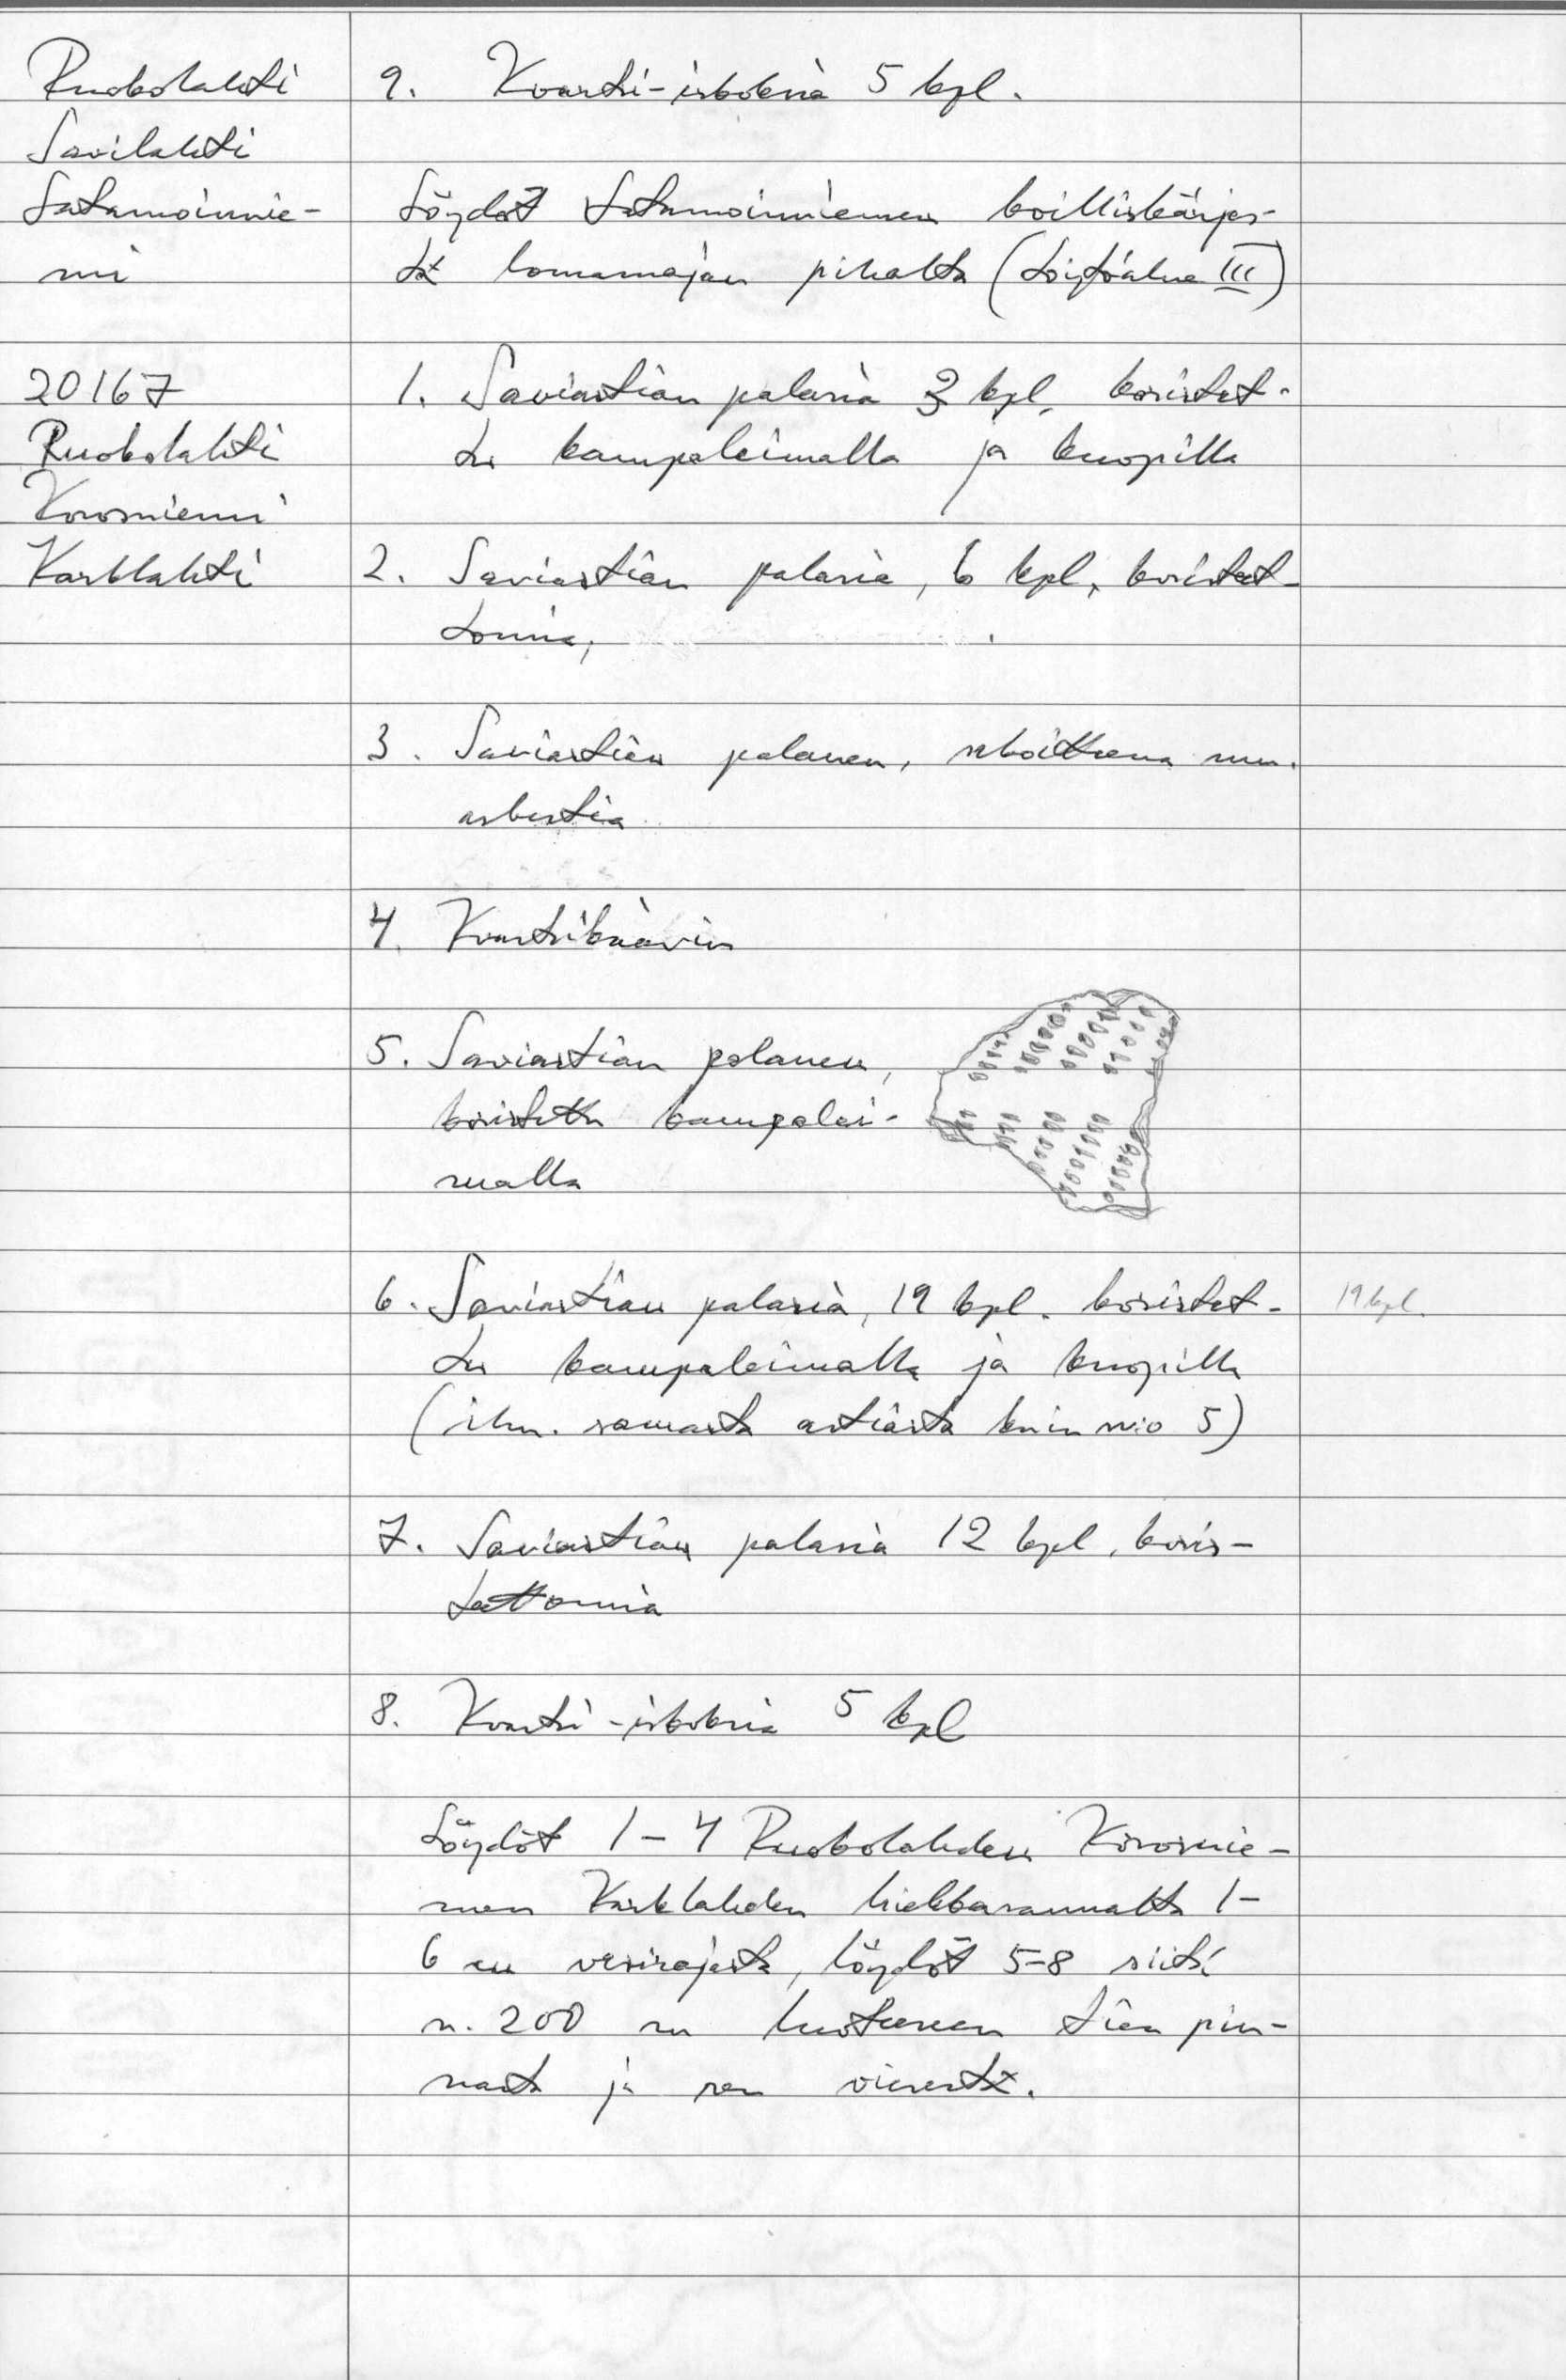 Ruokolahti
Savilahti
Satamoinnie-
mi
9. Kvartsi-iskoksia 5 kpl.
Löydöt Satamoinniemen koilliskärjes-
tä lomamajan pihalta (Löytöalue III)
20167
Ruokolahti
Kovosniemi
Karklahti
1. Saviastian palasia 3 kpl, koristet-
tu kampaleimalla ja kuopilla
2. Saviastian palasia, 6 kpl, koristeet-
tomia,
3. Saviastian palanen, sekoitteena mm.
asbestia
4. Kvartsikaavin
5. Saviastian palanen,
koristettu kampalei-
malla
6. Saviastian palasia, 19 kpl. koristet-
tu kampaleimalla ja kuopilla
(ilm. samasta astiasta kuin n:o 5)
19 kpl.
7. Saviastian palasia 12 kpl, koris-
teettomia
8. Kvartsi-iskoksia 5 kpl
Löydöt 1-4 Ruokolahden Kovosnie-
men Karklahden hiekkarannalta 1-
6 m vesirajasta, löydöt 5-8 siitä
n. 200 m luoteeseen tien pin-
nasta ja sen vierestä.